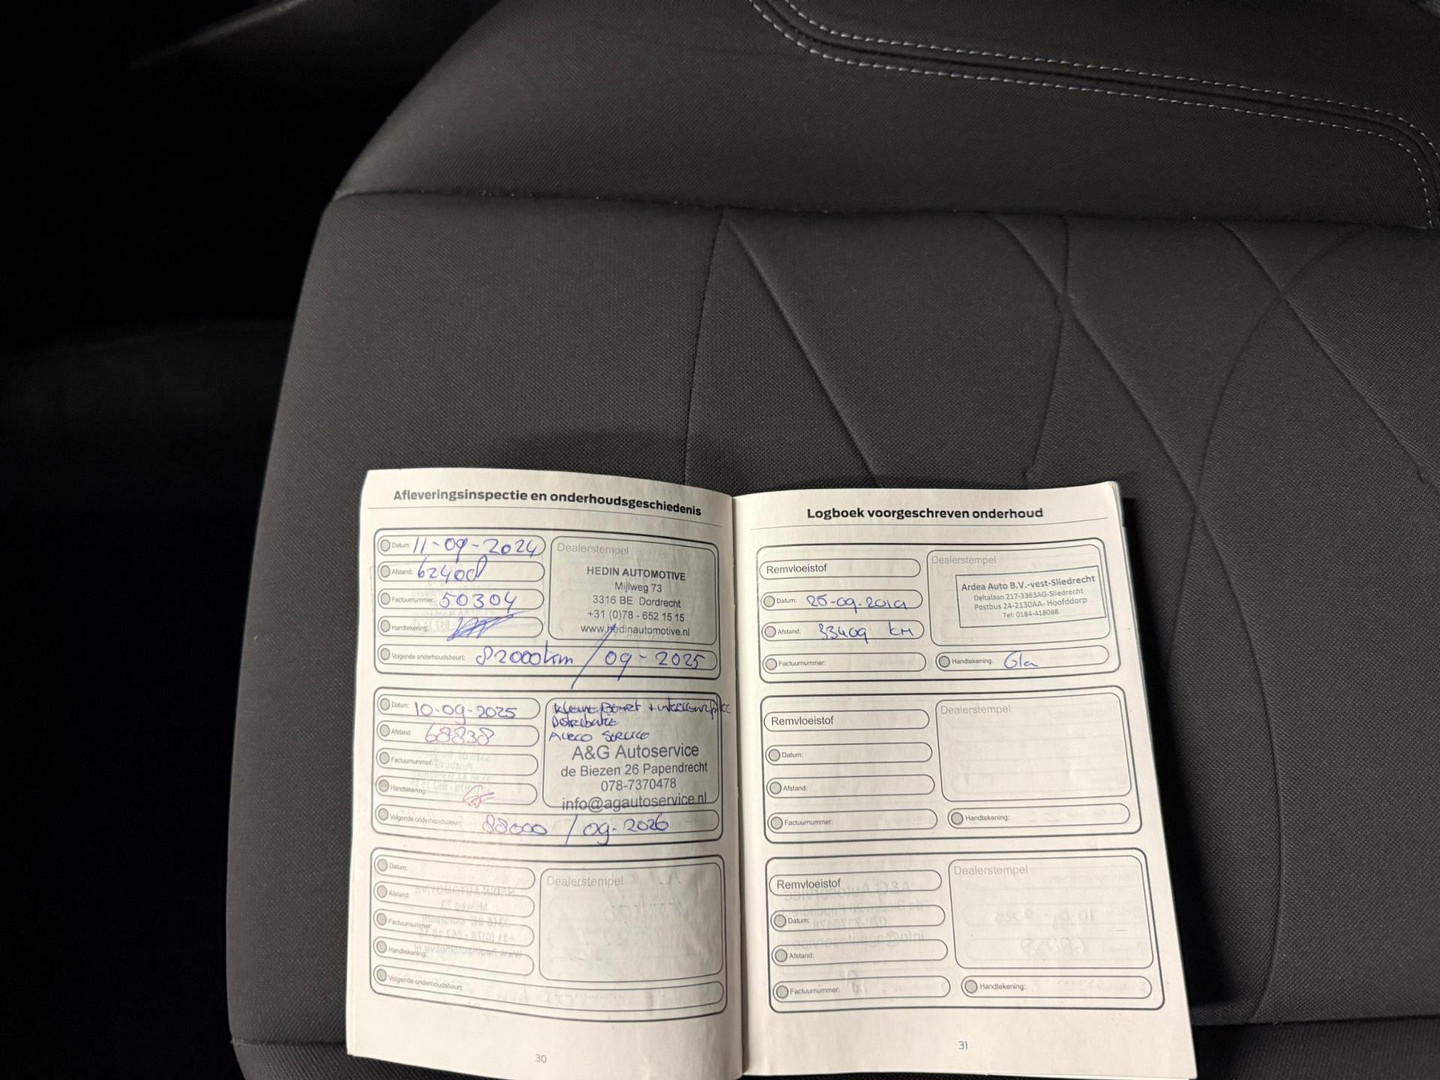 Afleveringsinspectie en onderhoudsgeschiedenis
Datum: 11-09-2024
Afstand:
Factuurnummer: 50304
Handtekening:
Volgende onderhoudsbeurt: 82000km / 09-2025
Dealerstempel
HEDIN AUTOMOTIVE
Mijlweg 73
3316 BE Dordrecht
+31 (0)78 - 652 15 15
www.hedinautomotive.nl
Datum: 10-09-2025
Afstand: 68838
Factuurnummer:
Handtekening:
Volgende onderhoudsbeurt: 88000 / 09-2026
A&G Autoservice
de Biezen 26 Papendrecht
078-7370478
info@agautoservice.nl
Datum:
Afstand:
Factuurnummer:
Handtekening:
Volgende onderhoudsbeurt:
Dealerstempel
30
Logboek voorgeschreven onderhoud
Remvloeistof
Datum: 25-09-2019
Afstand: 33409 KM
Factuurnummer:
Dealerstempel
Ardea Auto B.V.-vest-Sliedrecht
Deltalaan 217-3363AG-Sliedrecht
Postbus 24-2130AA- Hoofddorp
Tel: 0184-418088
Handtekening:
Remvloeistof
Datum:
Afstand:
Factuurnummer:
Dealerstempel
Handtekening:
Remvloeistof
Datum:
Afstand:
Factuurnummer:
Dealerstempel
Handtekening:
31